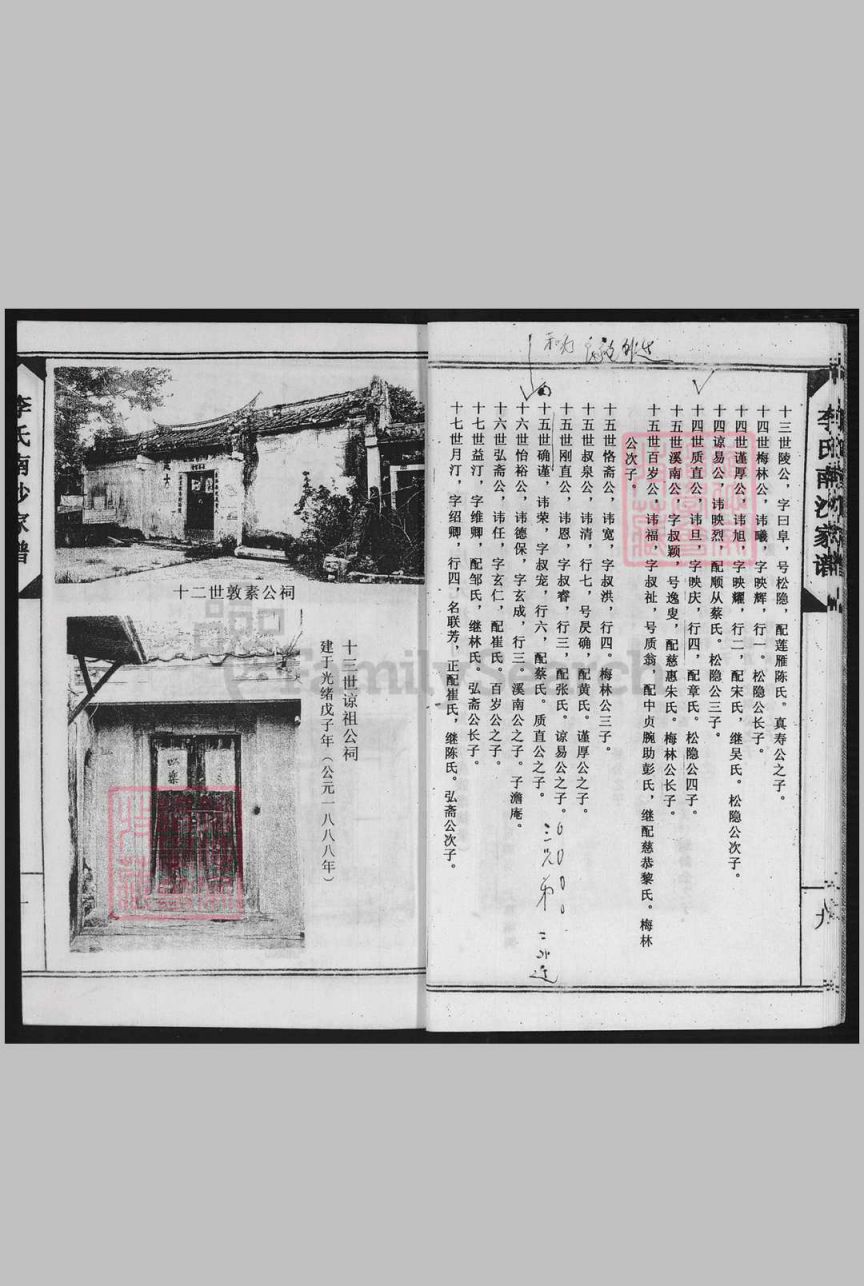 李氏南沙家谱
十三世陵公，字曰阜，号松隐，配莲雁陈氏。真寿公之子。
十四世梅林公，讳曦，字映辉，行一。松隐公长子。
十四世谨厚公，讳旭，字映耀，行二，配宋氏，继吴氏。松隐公次子。
十四谅易公，讳映烈，配顺从蔡氏。松隐公三子。
十四世质直公，讳旦，字映庆，行四，配章氏。松隐公四子。
十五世溪南公，字叔颖，号逸叟，配慈惠朱氏。梅林公长子。
十五世百岁公，讳福，字叔祉，号质翁，配中贞腕助彭氏，继配慈恭黎氏。梅林
公次子。
十五世恪斋公，讳宽，字叔洪，行四。梅林公三子。
十五世叔泉公，讳清，行七，号昃确，配黄氏。谨厚公之子。
十五世刚直公，讳恩，字叔睿，行三，配张氏。谅易公之子。
十五世确谨，讳荣，字叔宠，行六，配蔡氏。质直公之子。
十六世怡裕公，讳德保，字玄成，行三。溪南公之子。子澹庵。
十六世弘斋公，讳任，字玄仁，配崔氏。百岁公之子。
十七世益汀，字维卿，配邹氏，继林氏。弘斋公长子。
十七世月汀，字绍卿，行四，名联芳，正配崔氏，继陈氏。弘斋公次子。
十九
十二世敦素公祠
十三世谅祖公祠
建于光绪戊子年（公元一八八八年）
李氏南沙家谱
FamilySearch